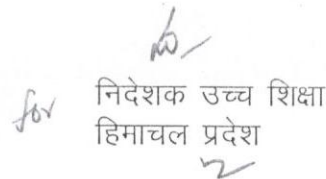 for निदेशक उच्च शिक्षा
हिमाचल प्रदेश